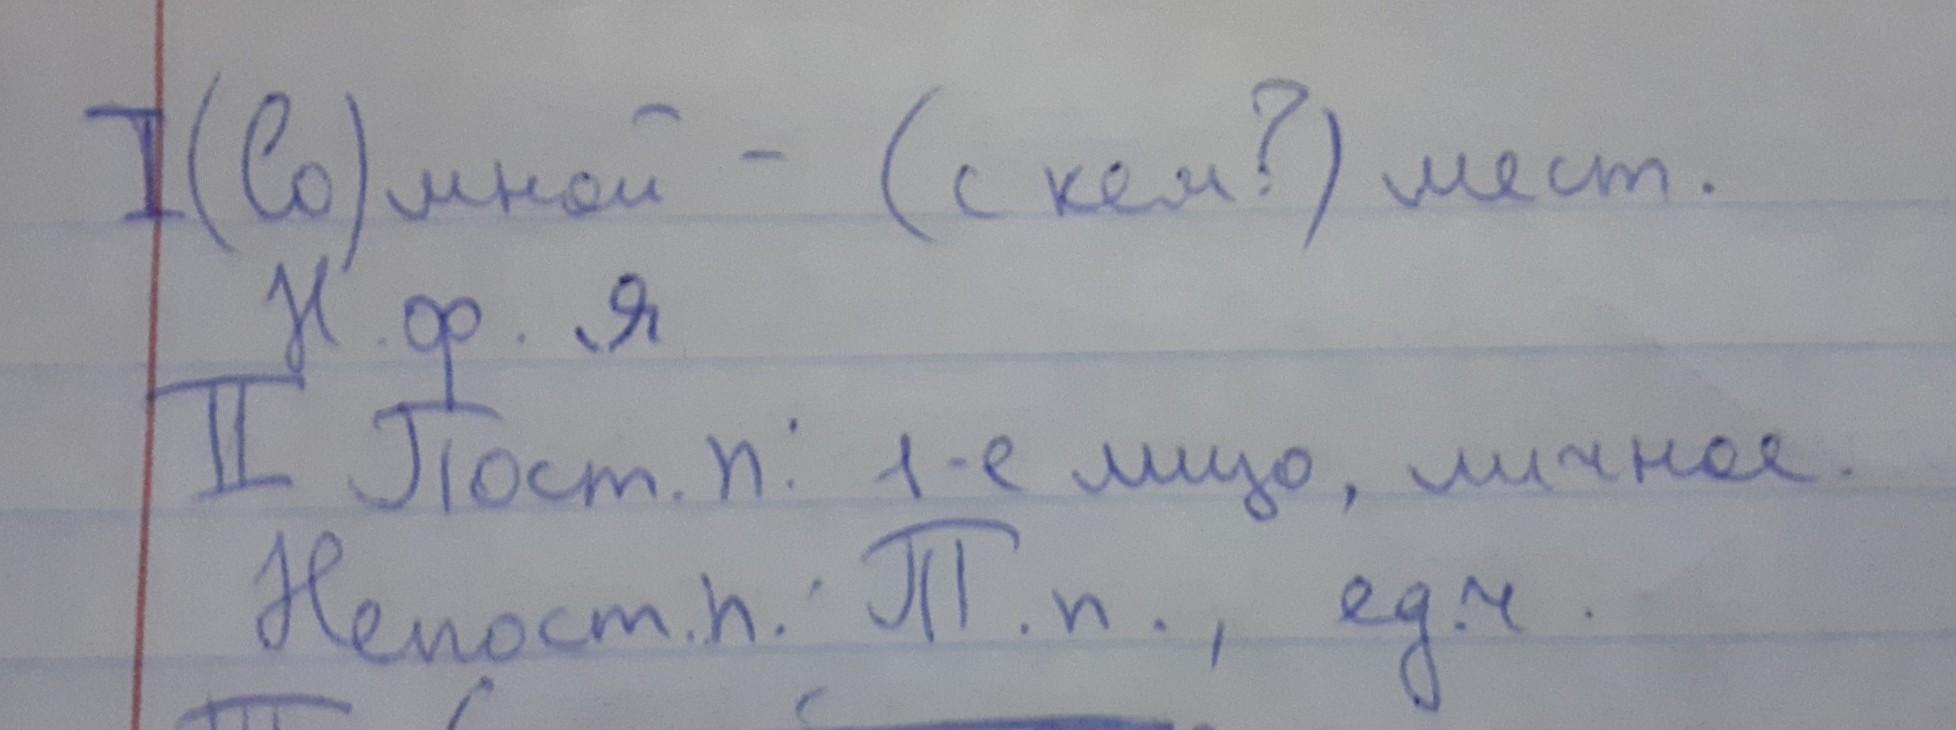 I (Со) мной - (с кем?) мест.
Н.ф. Я
II Пост. п: 1-е лицо, личное.
Непост. п.: Т.п., ед.ч.
III (